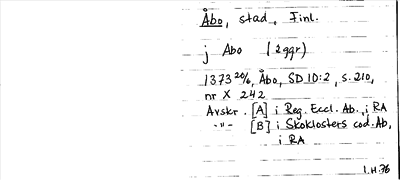 Åbo, stad, Finl.
j Abo (2ggr)
1373 20/6, Åbo, SD 10:2, s. 210,
nr X 242
Avskr. [A] i Reg. Eccl. Ab., i RA
-"- [B] i Skoklosters cod. Ab,
i RA
1.H.76